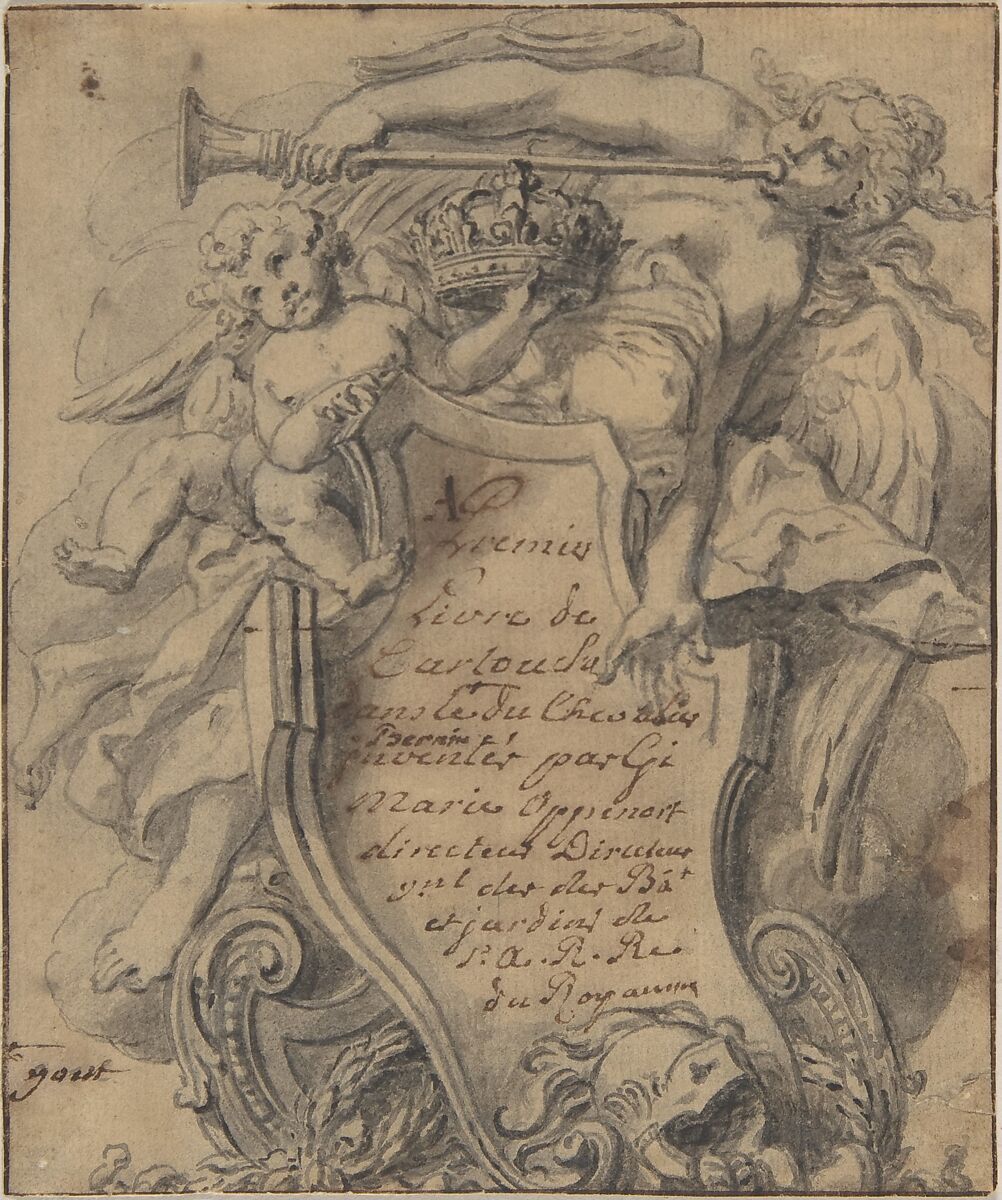 AP
Premier
Livre de
Cartouche
dans le du Chevalier
Bernin
inventés par Gi
Marie Oppenort
directeur Directeur
gnl des des Bat
et jardins de
S. A. R. Re
du Royaume
gout